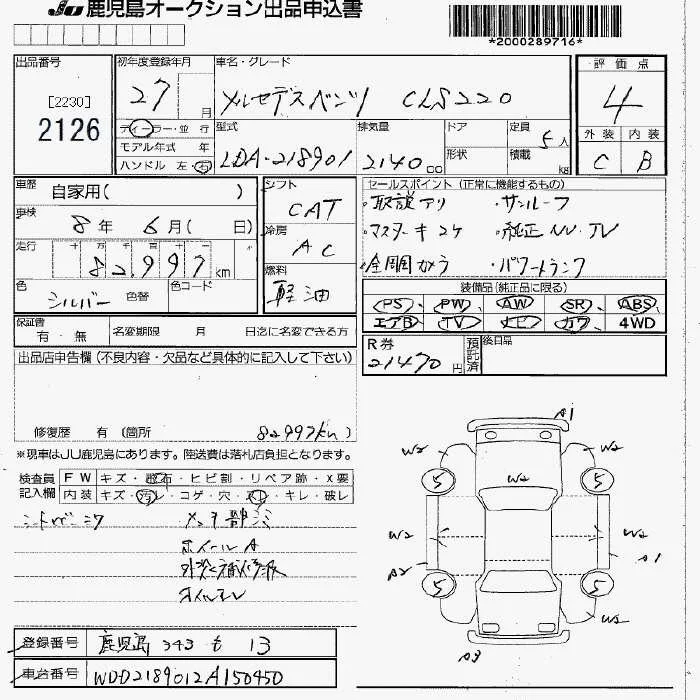 JU 鹿児島オークション出品申込書
*2000289716*
出品番号
[2230]
2126
初年度登録年月
27 月
ディーラー・並行
モデル年式 年
ハンドル 左・右
車名・グレード
メルセデスベンツ CLS220
型式
LDA-218901
排気量
2140 cc
ドア
形状
定員
5人
積載
kg
評価点
4
外装 内装
C B
車歴
自家用( )
車検
8年 6月( 日)
走行
十 万 千 百 十
82,997 km
色
シルバー
色替
色コード
シフト
CAT
冷房
AC
燃料
軽油
セールスポイント (正常に機能するもの)
・取説アリ ・サンルーフ
・マスターキ2ケ ・純正NV.TV
・全周カメラ ・パワートランク
装備品(純正品に限る)
PS、 PW、 AW、 SR、 ABS、
エアB、 TV、 ナビ、 カワ、 4WD
保証書
有・無
名変期限 月 日迄に名変できる方
R券
21470円
預託済
後日品
出品店申告欄 (不良内容・欠品など具体的に記入して下さい)
修復歴 有 (箇所 82997km)
※現車はJU鹿児島にあります。陸送費は落札店負担となります。
検査員
記入欄
FW キズ・飛石・ヒビ割・リペア跡・X要
内装 キズ・汚レ・コゲ・穴・スレ・キレ・破レ
ホイールA
オイルモレ
A1
W2 W2
5 5
W2
W2 W2
A2 A1
5 5
W2
A3
登録番号
鹿児島 343 も 13
車台番号
WDD2189012A150450